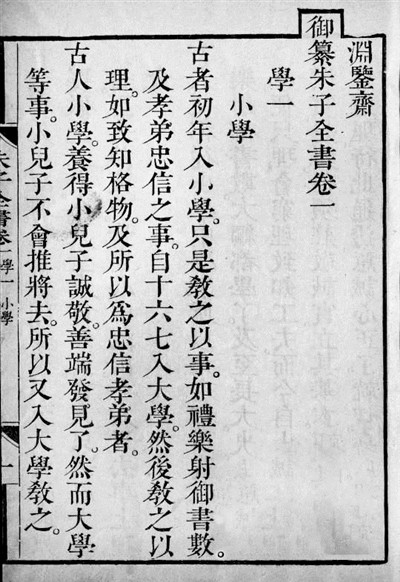 淵鑒齋
御纂朱子全書卷一
學一
小學
古者初年入小學。只是敎之以事。如禮樂射御書數。
及孝弟忠信之事。自十六七入大學。然後敎之以
理。如致知格物。及所以爲忠信孝弟者。
古人小學。養得小兒子誠敬。善端發見了。然而大學
等事。小兒子不會推將去。所以又入大學敎之。
朱子全書卷一 學一 小學
一